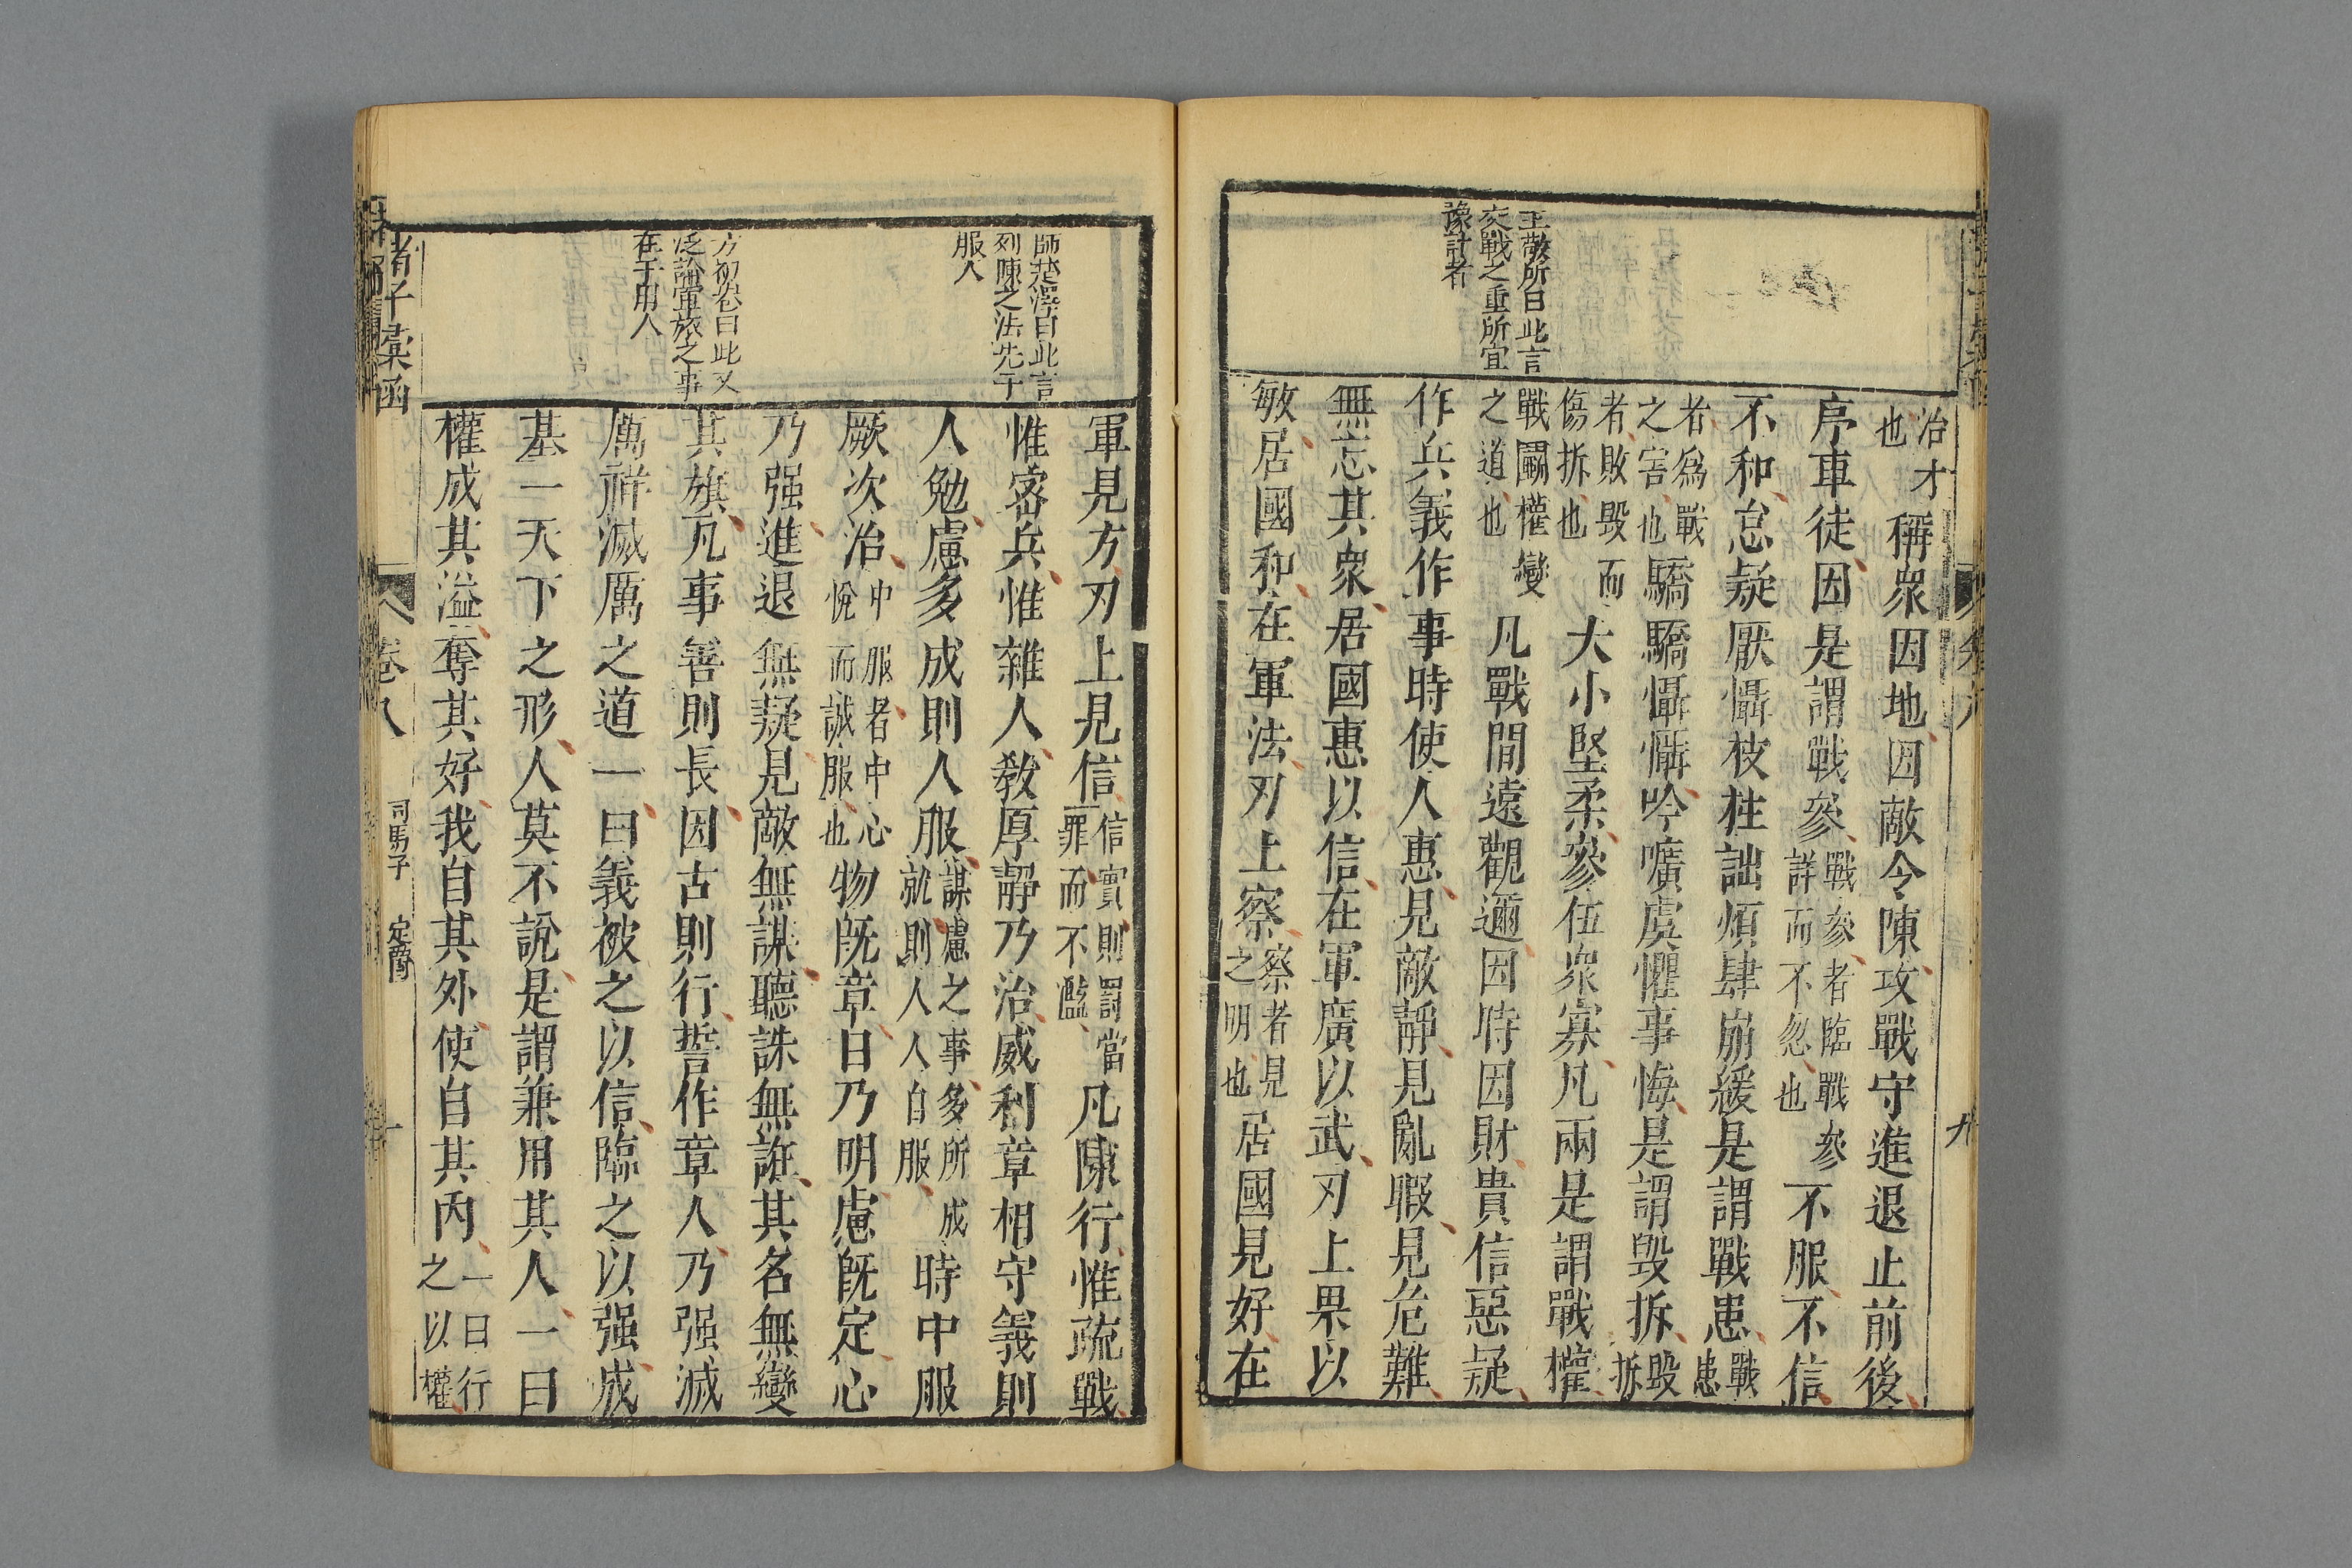 王敬所曰此言
交戰之重所宜
豫計者
治才稱衆因地因敵令陳攻戰守進退止前後
也
序車徒因是謂戰參戰參者臨戰參不服不信
詳而不忽也
不和怠疑厭懾枝拄詘煩肆崩緩是謂戰患戰
患
者爲戰驕驕懾懾吟嚝虞懼事悔是謂毀拆毀
之害也拆
者敗毀而大小堅柔參伍衆寡凡兩是謂戰權
傷拆也
戰鬭權變凡戰間遠觀邇因時因財貴信惡疑
之道也
作兵義作事時使人惠見敵靜見亂暇見危難
無忘其衆居國惠以信在軍廣以武刃上果以
敏居國和在軍法刃上察察者見居國見好在
之明也
九
師楚澤曰此言
列陳之法先于
服人
方初菴曰此又
泛論軍旅之事
在于用人
軍見方刃上見信信實則罰當凡陳行惟疏戰
罪而不濫
惟密兵惟雜人教厚靜乃治威利章相守義則
人勉慮多成則人服謀慮之事多所成時中服
就則人人自服
厥次治中服者中心物旣章目乃明慮旣定心
悅而誠服也
乃强進退無疑見敵無謀聽誅無誑其名無變
其旗凡事善則長因古則行誓作章人乃强滅
厲祥滅厲之道一曰義被之以信臨之以强成
基一天下之形人莫不說是謂兼用其人一曰
權成其溢奪其好我自其外使自其內一曰行
之以權
諸子彙函
卷八
司馬子
定爵